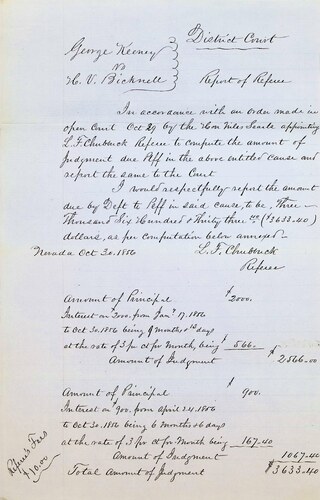 District Court
George Keeney
vs
H. V. Bicknell
Report of Referee
In accordance with an order made in
open Court Oct 29 by the Hon Niles Searls appointing
L. F. Chubbuck Referee to compute the amount of
Judgment due Plff in the above entitled cause and
report the same to the Court
I would respectfully report the amount
due by Deft to Plff in said cause, to be, Three
Thousand Six Hundred & Thirty three ($3633.40)
dollars, as per computation below annexed
Nevada Oct 30. 1856
L. F. Chubbuck
Referee
Amount of Principal $2000.
Interest on $2000. from Jany 17. 1856
to Oct 30 1856 being 9 months days
at the rate of 3 pr ct pr Month, being $566.
Amount of Judgment $2566.00
Amount of Principal $900.
Interest on $900. from april 24. 1856
to Oct 30. 1856 being 6 months 6 days
at the rate of 3 pr ct pr Month being 167.40
Amount of Judgment 1067.40
Total Amount of Judgment $3633.40
Referee's Fees
$10.00